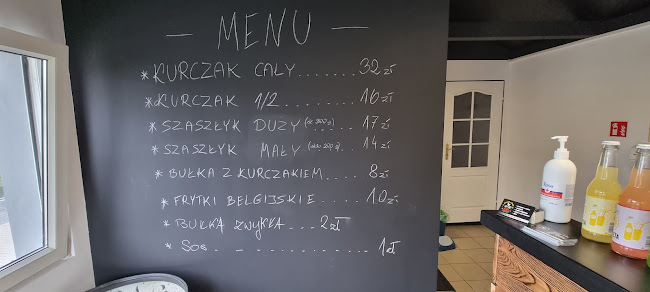 — MENU —
* KURCZAK CAŁY....... 32 zł
* KURCZAK 1/2 ........ 16 zł
* SZASZŁYK DUŻY ...... 17 zł
* SZASZŁYK MAŁY ..... 14 zł
* BUŁKA Z KURCZAKIEM.... 8 zł
* FRYTKI BELGIJSKIE.... 10 zł
* BUŁKA ZWYKŁA ... 2 zł
* SOS.. - ............ 1 zł